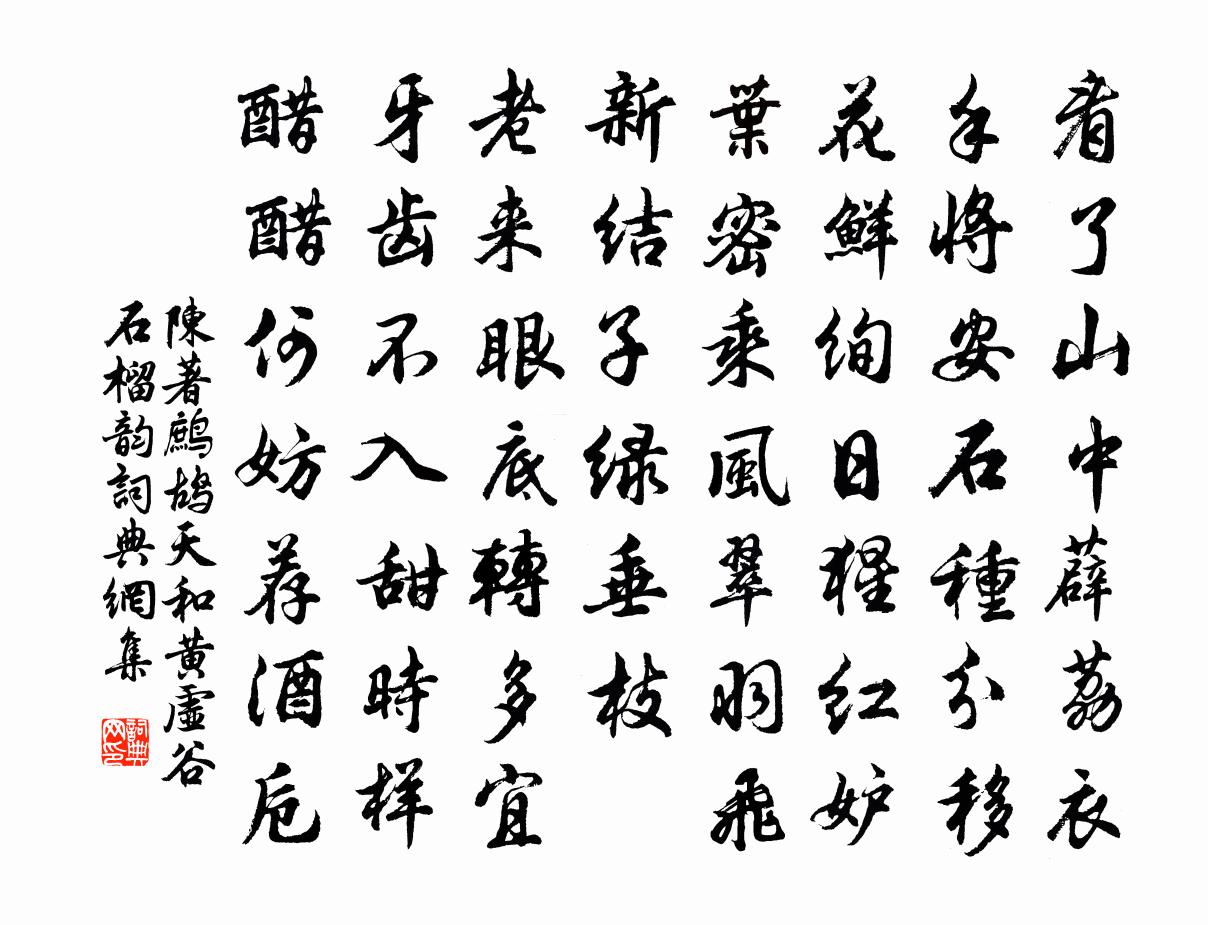 看了山中薜荔衣
手將安石種分移
花鮮絢日猩红妒
葉密乘風翠羽飛
新结子绿垂枝
老来眼底轉多宜
牙齿不入甜時样
醋醋何妨荐酒卮
陳著鷓鸪天和黄虚谷
石榴韵詞典網集
詞典
网印